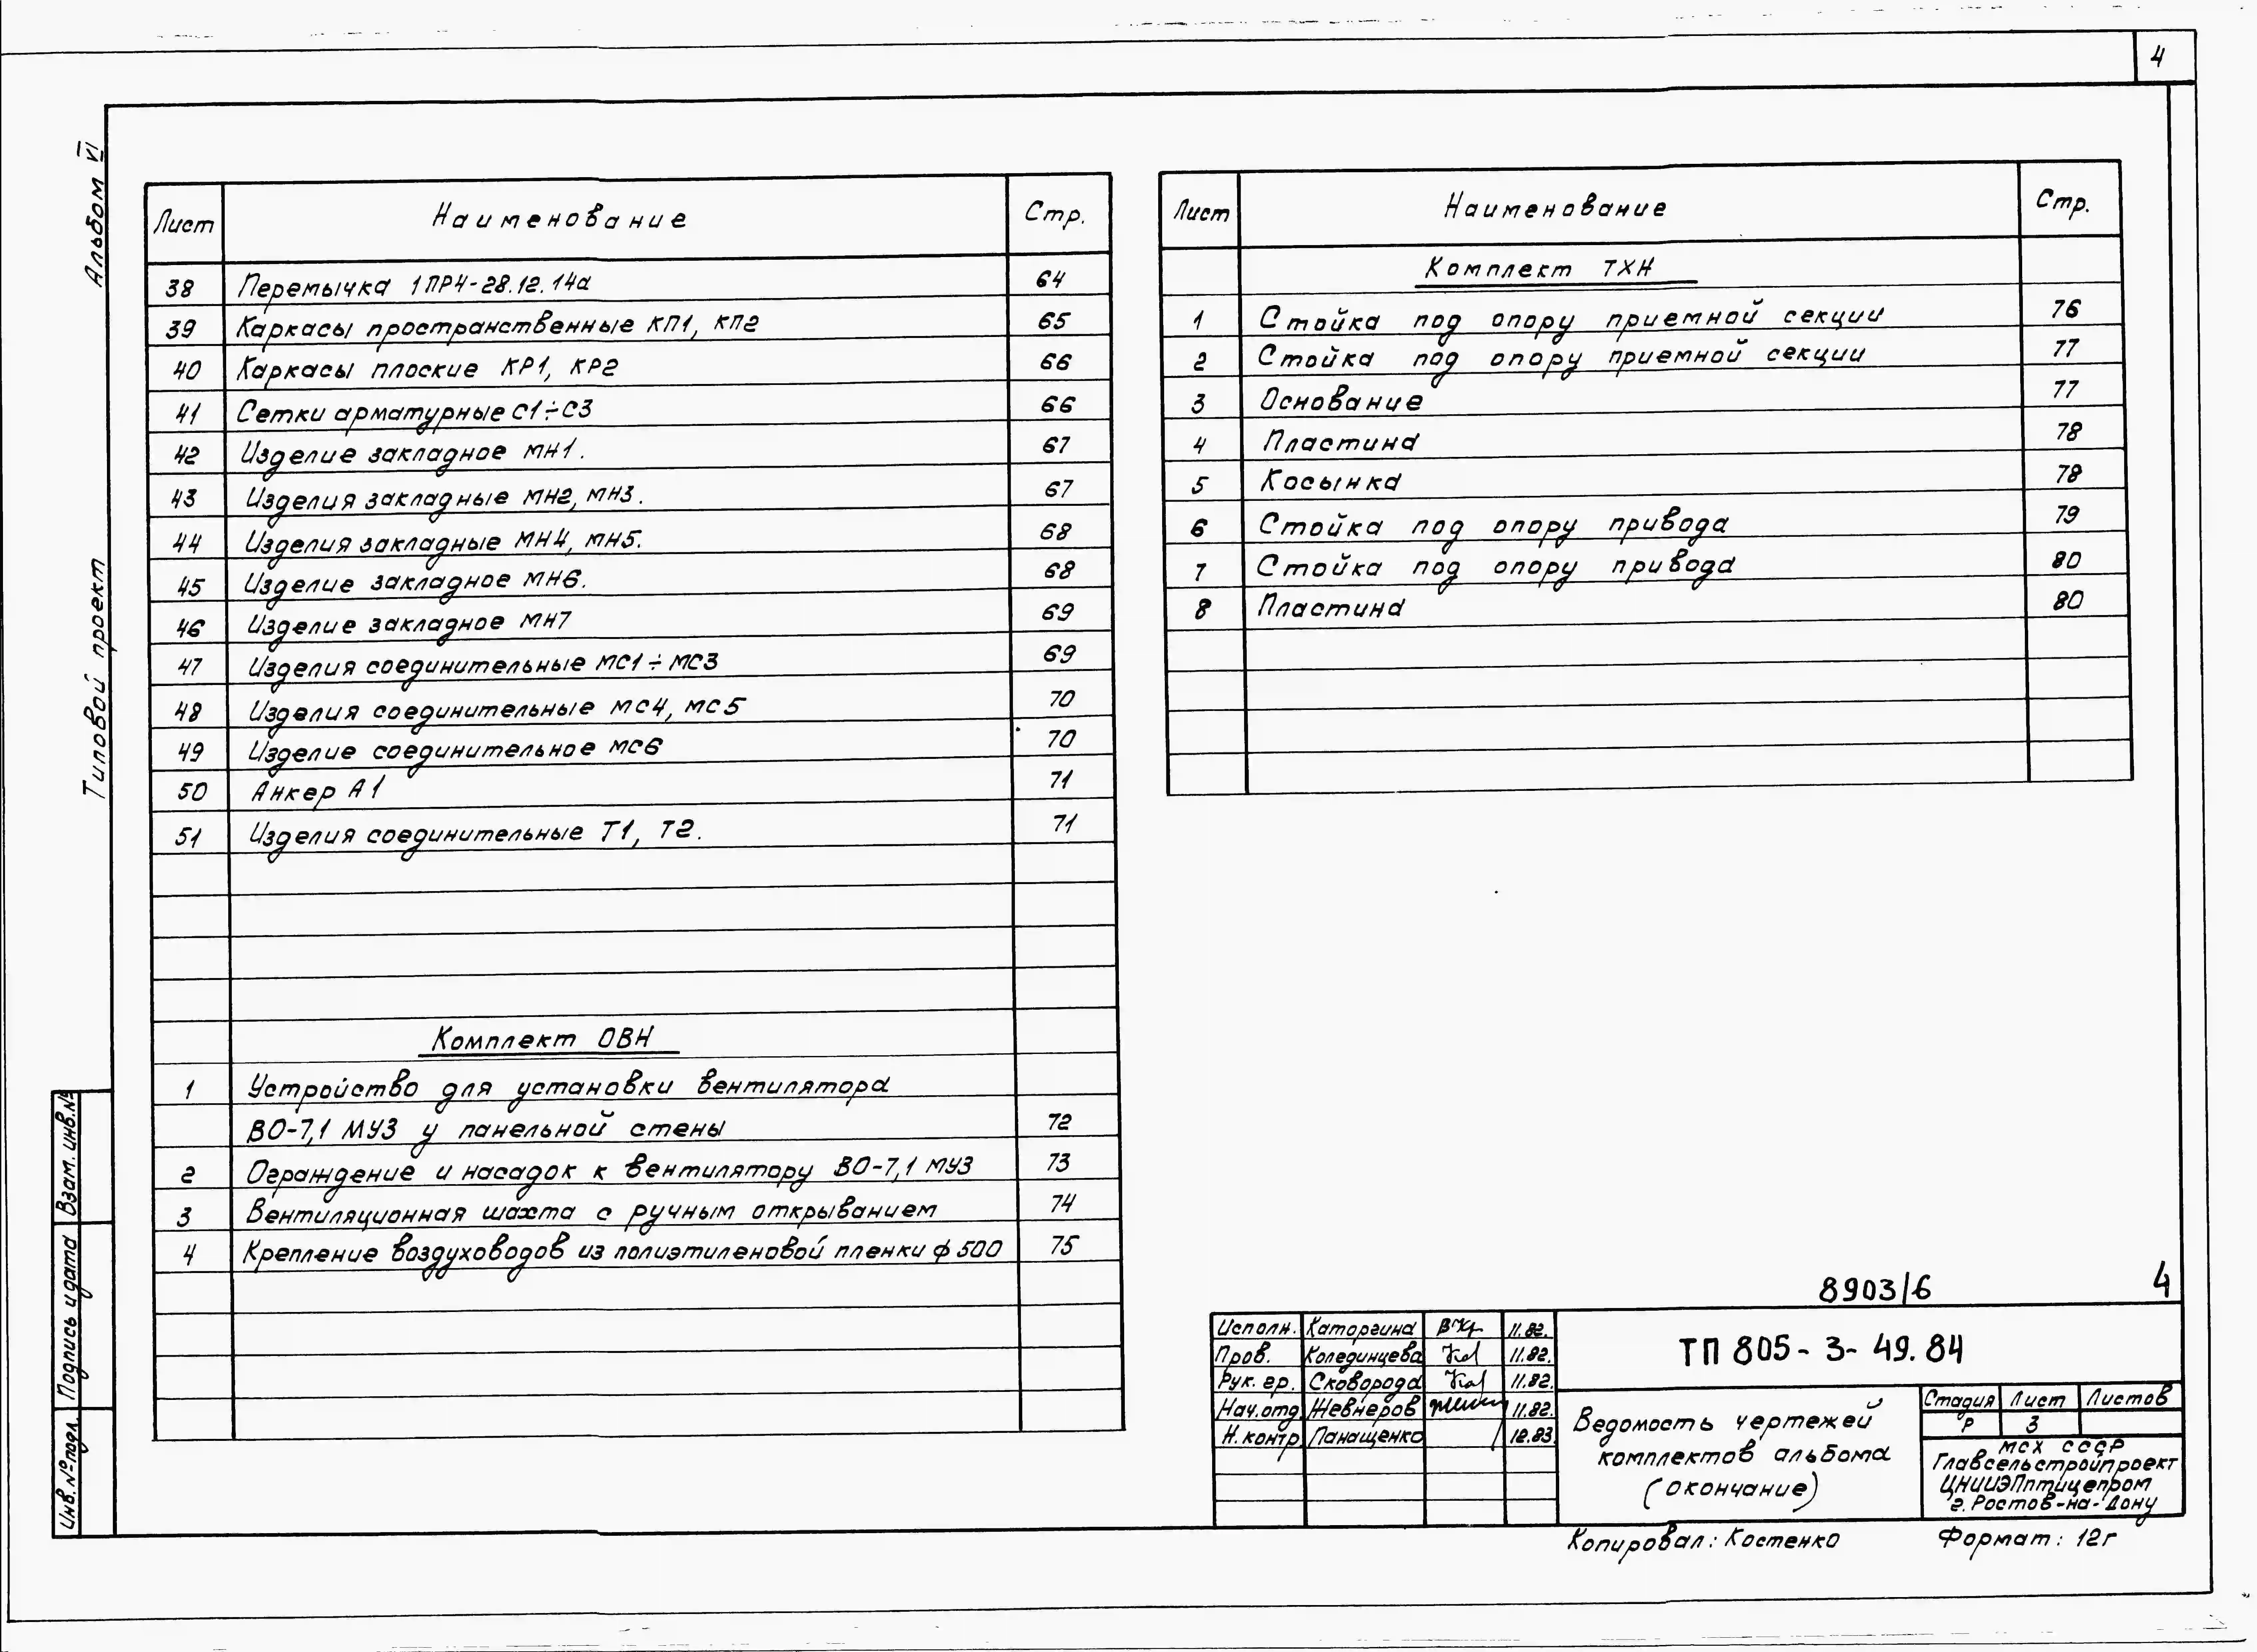 4
Альбом VI
Типовой проект
Лист Наименование Стр.
38 Перемычка 1ПР4-28.12.14а 64
39 Каркасы пространственные КП1, КП2 65
40 Каркасы плоские КР1, КР2 66
41 Сетки арматурные С1÷С3 66
42 Изделие закладное МН1. 67
43 Изделия закладные МН2, МН3. 67
44 Изделия закладные МН4, МН5. 68
45 Изделие закладное МН6. 68
46 Изделие закладное МН7 69
47 Изделия соединительные МС1÷МС3 69
48 Изделия соединительные МС4, МС5 70
49 Изделие соединительное МС6 70
50 Анкер А1 71
51 Изделия соединительные Т1, Т2. 71
Комплект ОВН
1 Устройство для установки вентилятора
ВО-7,1 МУ3 у панельной стены 72
2 Ограждение и насадок к вентилятору ВО-7,1 МУ3 73
3 Вентиляционная шахта с ручным открыванием 74
4 Крепление воздуховодов из полиэтиленовой пленки ф 500 75
Лист Наименование Стр.
Комплект ТХН
1 Стойка под опору приемной секции 76
2 Стойка под опору приемной секции 77
3 Основание 77
4 Пластина 78
5 Косынка 78
6 Стойка под опору привода 79
7 Стойка под опору привода 80
8 Пластина 80
Взам. инв.№
Подпись и дата
Инв.№ подл.
8903/6 4
Исполн. Каторгина 11.82.
Пров. Колединцева 11.82.
Рук. гр. Сковорода 11.82.
Нач.отд. Жевнеров 11.82.
Н.контр. Панащенко 12.83.
ТП 805-3-49.84
Ведомость чертежей
комплектов альбома
(окончание)
Стадия Лист Листов
Р 3
МСХ СССР
Главсельстройпроект
ЦНИИЭПптицепром
г. Ростов-на-Дону
Копировал: Костенко Формат: 12г